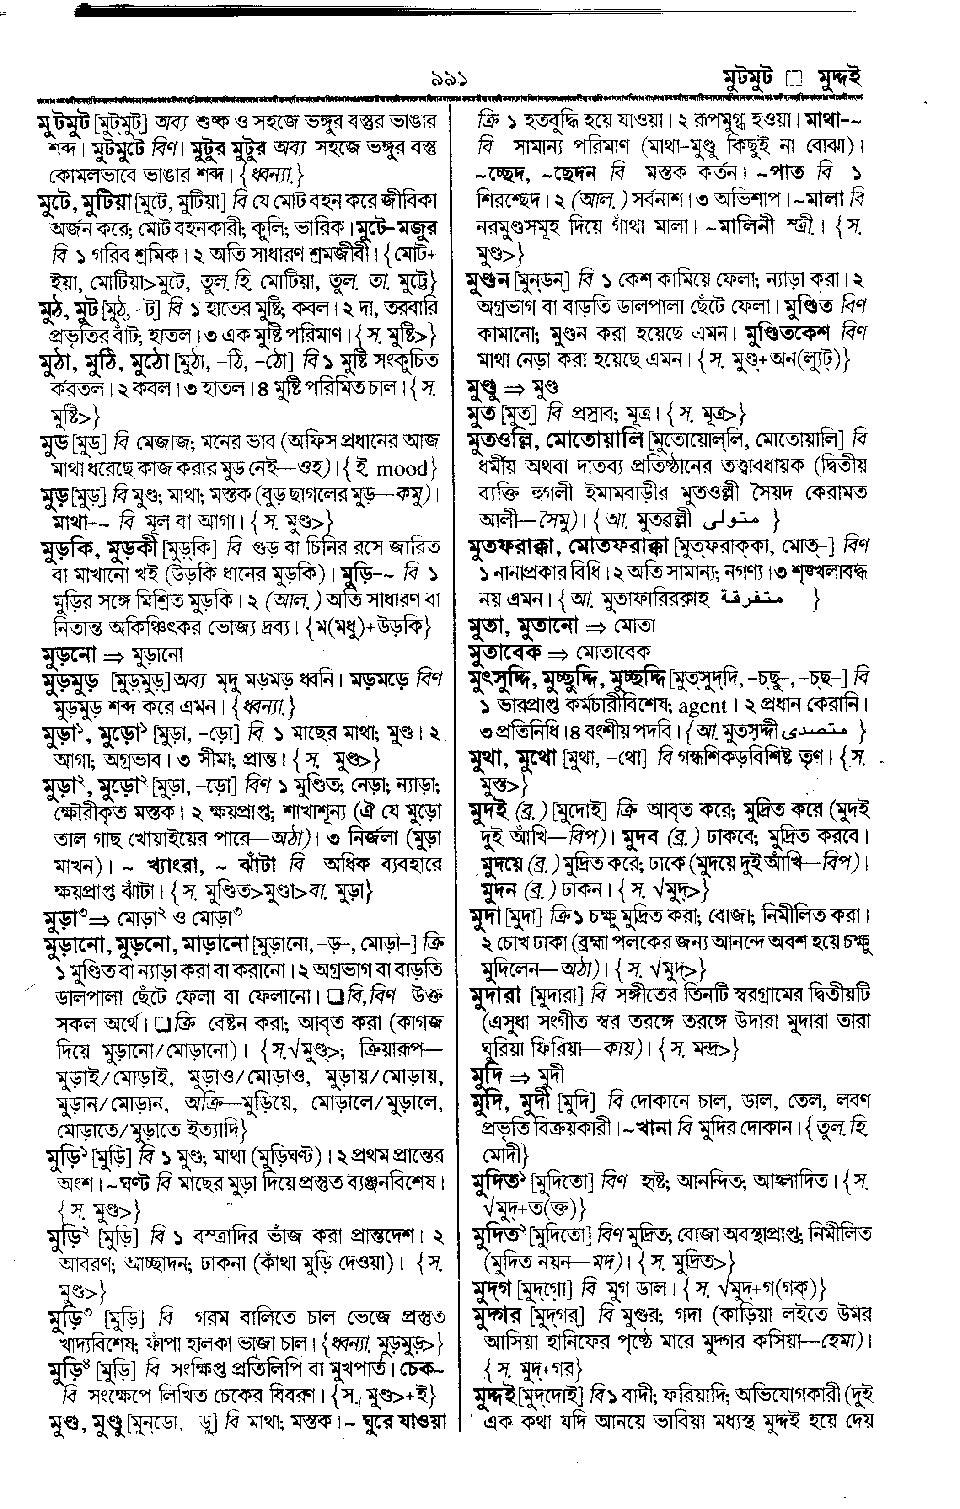 ৯৯১
মুটমুট □ মুদ্দই
মুটমুট [মুট্‌মুট্] অব্য শুষ্ক ও সহজে ভঙ্গুর বস্তুর ভাঙার
শব্দ। মুটমুটে বিণ। মুটুর মুটুর অব্য সহজে ভঙ্গুর বস্তু
কোমলভাবে ভাঙার শব্দ। {ধ্বন্যা.}
মুটে, মুটিয়া [মুটে, মুটিয়া] বি যে মোট বহন করে জীবিকা
অর্জন করে; মোট বহনকারী; কুলি; ভারিক। মুটে-মজুর
বি ১ গরিব শ্রমিক। ২ অতি সাধারণ শ্রমজীবী। {মোট+
ইয়া, মোটিয়া>মুটে, তুল. হি. মোটিয়া, তুল. তা. মুট্টে}
মুঠ, মুট [মুঠ্, -ট্] বি ১ হাতের মুষ্টি; কবল। ২ দা, তরবারি
প্রভৃতির বাঁট; হাতল। ৩ এক মুষ্টি পরিমাণ। {স. মুষ্টি>}
মুঠা, মুঠি, মুঠো [মুঠা, -ঠি, -ঠো] বি ১ মুষ্টি সংকুচিত
করতল। ২ কবল। ৩ হাতল। ৪ মুষ্টি পরিমিত চাল। {স.
মুষ্টি>}
মুড [মুড্] বি মেজাজ; মনের ভাব (অফিস প্রধানের আজ
মাথা ধরেছে কাজ করার মুড নেই—ওহ)। {ই. mood}
মুড় [মুড়্] বি মুণ্ড; মাথা; মস্তক (বুড় ছাগলের মুড়—কমু)।
মাথা-~ বি মূল বা আগা। {স. মুণ্ড>}
মুড়কি, মুড়কী [মুড়্‌কি] বি গুড় বা চিনির রসে জারিত
বা মাখানো খই (উড়কি ধানের মুড়কি)। মুড়ি-~ বি ১
মুড়ির সঙ্গে মিশ্রিত মুড়কি। ২ (আল.) অতি সাধারণ বা
নিতান্ত অকিঞ্চিৎকর ভোজ্য দ্রব্য। {ম(মধু)+উড়কি}
মুড়নো ⇒ মুড়ানো
মুড়মুড় [মুড়্‌মুড়্] অব্য মৃদু মড়মড় ধ্বনি। মড়মড়ে বিণ
মুড়মুড় শব্দ করে এমন। {ধ্বন্যা.}
মুড়া¹, মুড়ো¹ [মুড়া, -ড়ো] বি ১ মাছের মাথা; মুণ্ড। ২
আগা; অগ্রভাব। ৩ সীমা; প্রান্ত। {স. মুণ্ড>}
মুড়া², মুড়ো² [মুড়া, -ড়ো] বিণ ১ মুণ্ডিত; নেড়া; ন্যাড়া;
ক্ষৌরীকৃত মস্তক। ২ ক্ষয়প্রাপ্ত; শাখাশূন্য (ঐ যে মুড়ো
তাল গাছ খোয়াইয়ের পারে—অঠা)। ৩ নির্জলা (মুড়া
মাখন)। ~ খ্যাংরা, ~ ঝাঁটা বি অধিক ব্যবহারে
ক্ষয়প্রাপ্ত ঝাঁটা। {স. মুণ্ডিত>মুণ্ডা>বা. মুড়া}
মুড়া³ ⇒ মোড়া² ও মোড়া³
মুড়ানো, মুড়নো, মাড়ানো [মুড়ানো, -ড়্-, মোড়া-] ক্রি
১ মুণ্ডিত বা ন্যাড়া করা বা করানো। ২ অগ্রভাগ বা বাড়তি
ডালপালা ছেঁটে ফেলা বা ফেলানো। □ বি, বিণ উক্ত
সকল অর্থে। □ ক্রি বেষ্টন করা; আবৃত করা (কাগজ
দিয়ে মুড়ানো/মোড়ানো)। {স.√মুণ্ড>; ক্রিয়ারূপ—
মুড়াই/মোড়াই, মুড়াও/মোড়াও, মুড়ায়/মোড়ায়,
মুড়ান/মোড়ান, অক্রি—মুড়িয়ে, মোড়ালে/মুড়ালে,
মোড়াতে/মুড়াতে ইত্যাদি}
মুড়ি¹ [মুড়ি] বি ১ মুণ্ড; মাথা (মুড়িঘণ্ট)। ২ প্রথম প্রান্তের
অংশ। ~ঘণ্ট বি মাছের মুড়া দিয়ে প্রস্তুত ব্যঞ্জনবিশেষ।
{স. মুণ্ড>}
মুড়ি² [মুড়ি] বি ১ বস্ত্রাদির ভাঁজ করা প্রান্তদেশ। ২
আবরণ; আচ্ছাদন; ঢাকনা (কাঁথা মুড়ি দেওয়া)। {স.
মুণ্ড>}
মুড়ি³ [মুড়ি] বি গরম বালিতে চাল ভেজে প্রস্তুত
খাদ্যবিশেষ; ফাঁপা হালকা ভাজা চাল। {ধ্বন্যা. মুড়মুড়>}
মুড়ি⁴ [মুড়ি] বি সংক্ষিপ্ত প্রতিলিপি বা মুখপাত। চেক-~
বি সংক্ষেপে লিখিত চেকের বিবরণ। {স. মুণ্ড>+ই}
মুণ্ড, মুণ্ডু [মুন্‌ডো, -ডু] বি মাথা; মস্তক। ~ ঘুরে যাওয়া
ক্রি ১ হতবুদ্ধি হয়ে যাওয়া। ২ রূপমুগ্ধ হওয়া। মাথা-~
বি সামান্য পরিমাণ (মাথা-মুণ্ডু কিছুই না বোঝা)।
~চ্ছেদ, ~ছেদন বি মস্তক কর্তন। ~পাত বি ১
শিরশ্ছেদ। ২ (আল.) সর্বনাশ। ৩ অভিশাপ। ~মালা বি
নরমুণ্ডসমূহ দিয়ে গাঁথা মালা। ~মালিনী স্ত্রী। {স.
মুণ্ড>}
মুণ্ডন [মুন্‌ডন্] বি ১ কেশ কামিয়ে ফেলা; ন্যাড়া করা। ২
অগ্রভাগ বা বাড়তি ডালপালা ছেঁটে ফেলা। মুণ্ডিত বিণ
কামানো; মুণ্ডন করা হয়েছে এমন। মুণ্ডিতকেশ বিণ
মাথা নেড়া করা হয়েছে এমন। {স. মুণ্ড+অন(ল্যুট্)}
মুণ্ডু ⇒ মুণ্ড
মুত [মুত্] বি প্রস্রাব; মূত্র। {স. মূত্র>}
মুতওল্লি, মোতোয়ালি [মুতোয়োল্‌লি, মোতোয়ালি] বি
ধর্মীয় অথবা দাতব্য প্রতিষ্ঠানের তত্ত্বাবধায়ক (দ্বিতীয়
ব্যক্তি হুগলী ইমামবাড়ীর মুতওল্লী সৈয়দ কেরামত
আলী—সৈমু)। {আ. মুতৱল্লী متولى }
মুতফরাক্কা, মোতফরাক্কা [মুত্‌ফরাক্‌কা, মোত্-] বিণ
১ নানাপ্রকার বিধি। ২ অতি সামান্য; নগণ্য। ৩ শৃঙ্খলাবদ্ধ
নয় এমন। {আ. মুতাফারিরকাহ متفرقة }
মুতা, মুতানো ⇒ মোতা
মুতাবেক ⇒ মোতাবেক
মুৎসুদ্দি, মুচ্ছুদ্দি, মুচ্ছদ্দি [মুত্‌সুদ্‌দি, -চ্‌ছু-, -চ্‌ছ-] বি
১ ভারপ্রাপ্ত কর্মচারীবিশেষ; agent। ২ প্রধান কেরানি।
৩ প্রতিনিধি। ৪ বংশীয় পদবি। {আ. মুতসদ্দী متصدى }
মুথা, মুথো [মুথা, -থো] বি গন্ধশিকড়বিশিষ্ট তৃণ। {স.
মুস্ত>}
মুদই (ব্র.) [মুদোই] ক্রি আবৃত করে; মুদ্রিত করে (মুদই
দুই আঁখি—বিপ)। মুদব (ব্র.) ঢাকবে; মুদ্রিত করবে।
মুদয়ে (ব্র.) মুদ্রিত করে; ঢাকে (মুদয়ে দুই আঁখি—বিপ)।
মুদন (ব্র.) ঢাকন। {স. √মুদ্>}
মুদা [মুদা] ক্রি ১ চক্ষু মুদ্রিত করা; বোজা; নিমীলিত করা।
২ চোখ ঢাকা (ব্রহ্মা পলকের জন্য আনন্দে অবশ হয়ে চক্ষু
মুদিলেন—অঠা)। {স. √মুদ্>}
মুদারা [মুদারা] বি সঙ্গীতের তিনটি স্বরগ্রামের দ্বিতীয়টি
(এসুধা সংগীত স্বর তরঙ্গে তরঙ্গে উদারা মুদারা তারা
ঘুরিয়া ফিরিয়া—কায়)। {স. মন্দ্র>}
মুদি ⇒ মুদী
মুদি, মুদী [মুদি] বি দোকানে চাল, ডাল, তেল, লবণ
প্রভৃতি বিক্রয়কারী। ~খানা বি মুদির দোকান। {তুল. হি.
মোদী}
মুদিত¹ [মুদিতো] বিণ হৃষ্ট; আনন্দিত; আহ্লাদিত। {স.
√মুদ্+ত(ক্ত)}
মুদিত² [মুদিতো] বিণ মুদ্রিত; বোজা অবস্থাপ্রাপ্ত; নিমীলিত
(মুদিত নয়ন—মদ)। {স. মুদ্রিত>}
মুদ্‌গ [মুদ্‌গো] বি মুগ ডাল। {স. √মুদ্+গ(গক্)}
মুদ্‌গর [মুদ্‌গর্] বি মুগুর; গদা (কাড়িয়া লইতে উমর
আসিয়া হানিফের পৃষ্ঠে মারে মুদ্‌গর কসিয়া—হেমা)।
{স. মুদ্+গর}
মুদ্দই [মুদ্‌দোই] বি ১ বাদী; ফরিয়াদি; অভিযোগকারী (দুই
এক কথা যদি আনয়ে ভাবিয়া মধ্যস্থ মুদ্দই হয়ে দেয়